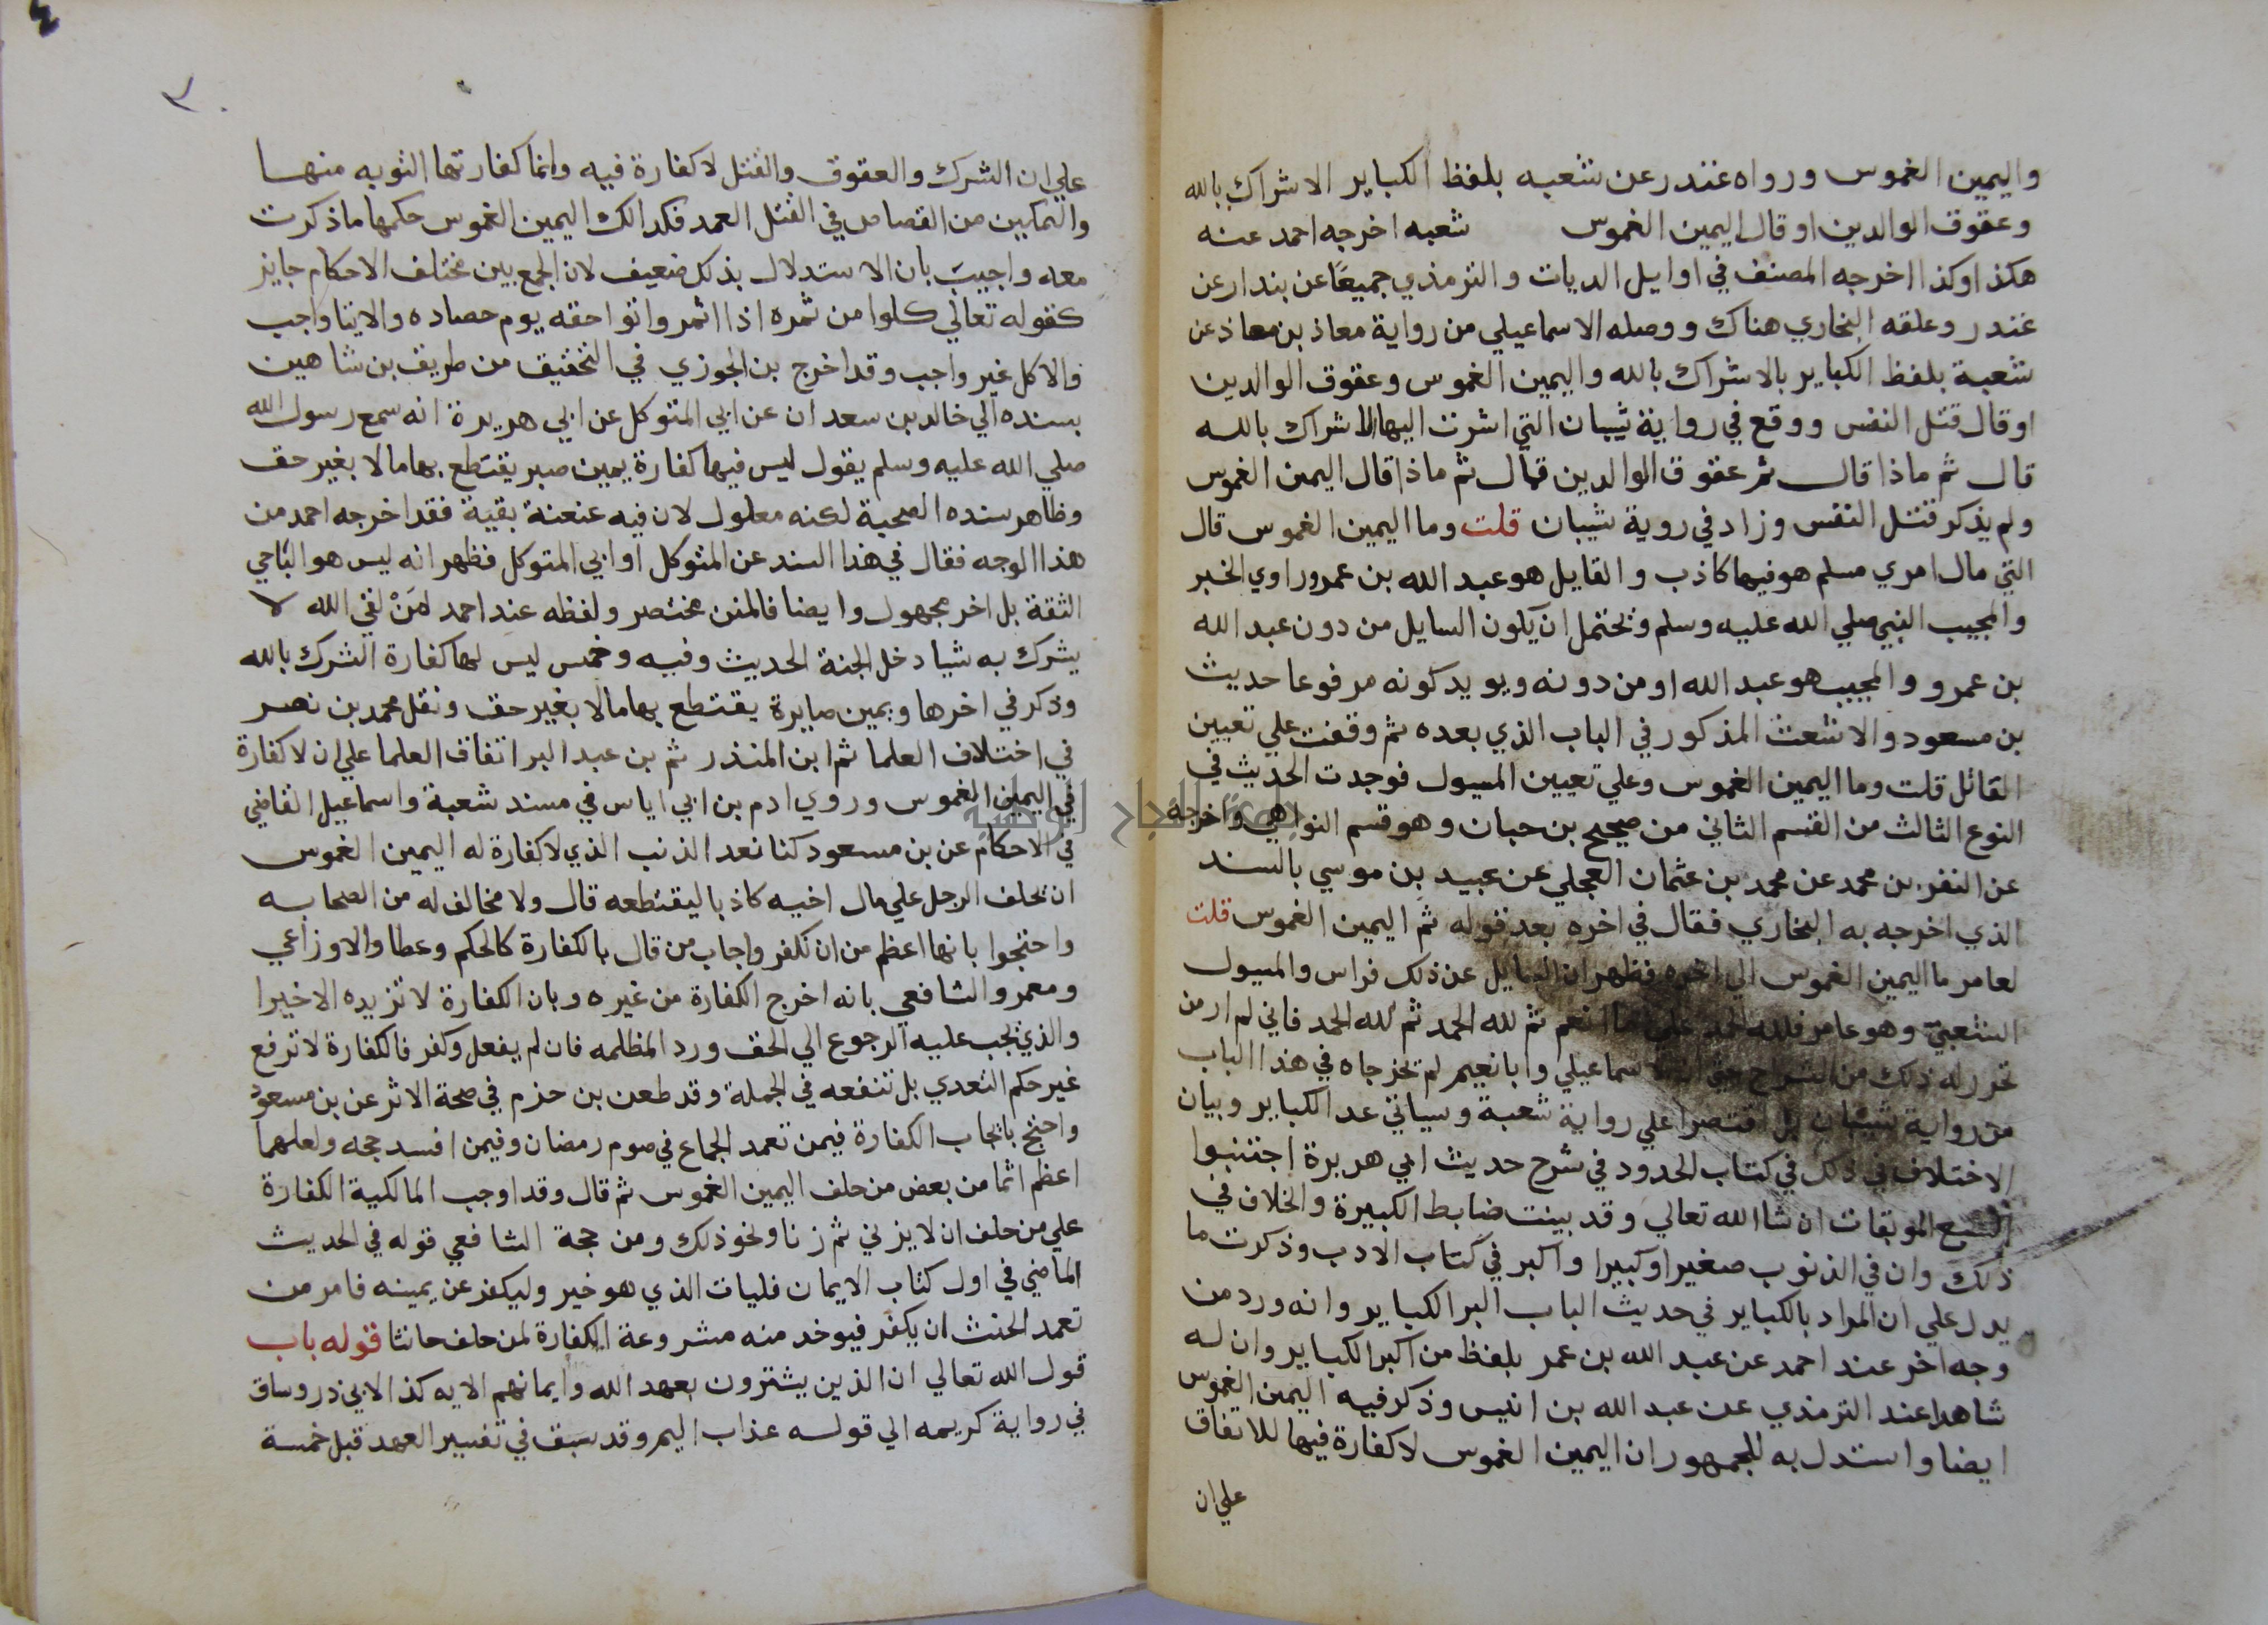 واليمين الغموس ورواه غندر عن شعبه بلفظ الكباير الاشراك بالله
وعقوق الوالدين او قال اليمين الغموس شعبه اخرجه احمد عنه
هكذا وكذا اخرجه المصنف في اوايل الديات والترمذي جميعًا عن بندار عن
غندر وعلقه البخاري هناك ووصله الاسماعيلي من رواية معاذ بن معاذ عن
شعبة بلفظ الكباير بالاشراك بالله واليمين الغموس وعقوق الوالدين
او قال قتل النفس ووقع في رواية شيبان التي اشرت اليها الاشراك بالله
قال ثم ماذا قال ثم عقوق الوالدين قال ثم ماذا قال اليمين الغموس
ولم يذكر قتل النفس وزاد في روية شيبان قلت وما اليمين الغموس قال
التي مال امري مسلم هو فيها كاذب والقايل هو عبد الله بن عمرو راوي الخبر
والمجيب النبي صلي الله عليه وسلم ويحتمل ان يكون السايل من دون عبد الله
بن عمرو والمجيب هو عبد الله او من دونه ويويد كونه مرفوعا حديث
بن مسعود والاشعث المذكور في الباب الذي بعده ثم وقفت علي تعيين
القائل قلت وما اليمين الغموس وعلي تعيين المسيول فوجدت الحديث في
النوع الثالث من القسم الثاني من صحيح بن حبان وهو قسم النواهي واخرجه
عن النفر بن محمد عن محمد بن عثمان العجلي عن عبيد بن موسي بالسند
الذي اخرجه به البخاري فقال في اخره بعد قوله ثم اليمين الغموس قلت
لعامر ما اليمين الغموس الي اخره فظهر ان السايل عن ذلك فراس والمسيول
الشعبي وهو عامر فلله الحمد علي ما انعم ثم لله الحمد ثم لله الحمد فاني لم ار من
تحرر له ذلك من الشراح حتي ان الاسماعيلي وابا نعيم لم تخرجاه في هذا الباب
من رواية شيبان بل اقتصرا علي رواية شعبة وسياتي عد الكباير وبيان
الاختلاف في ذلك في كتاب الحدود في شرح حديث ابي هريرة اجتنبوا
السبع الموبقات ان شا الله تعالي وقد بينت ضابط الكبيرة والخلاف في
ذلك وان في الذنوب صغيرا وكبيرا واكبر في كتاب الادب وذكرت ما
يدل علي ان المراد بالكباير في حديث الباب البر الكباير وانه ورد من
وجه اخر عند احمد عن عبد الله بن عمر بلفظ من اكبر الكباير وان له
شاهدا عند الترمذي عن عبد الله بن انيس وذكر فيه اليمين الغموس
ايضا واستدل به للجمهور ان اليمين الغموس لا كفارة فيها للاتفاق
علي ان
٤
علي ان الشرك والعقوق والقتل لا كفارة فيه وانما كفارتها التوبه منها
والتمكين من القصاص في القتل العمد فكدالك اليمين الغموس حكمها ما ذكرت
معه واجيب بان الاستدلال بذلك ضعيف لان الجمع بين مختلف الاحكام جايز
كقوله تعالي كلوا من ثمره اذا اثمر واتوا حقه يوم حصاده والايتا واجب
والاكل غير واجب وقد اخرج بن الجوزي في التحقيق من طريق بن شاهين
بسنده الي خالد بن سعدان عن ابي المتوكل عن ابي هريرة انه سمع رسول الله
صلي الله عليه وسلم يقول ليس فيها كفارة يمين صبر يقتطع بها مالا بغير حق
وظاهر سنده الصحية لكنه معلول لان فيه عنعنة بقية فقد اخرجه احمد من
هذا الوجه فقال في هذا السند عن المتوكل او ابي المتوكل فظهر انه ليس هو الناجي
الثقة بل اخر مجهول وايضا فالمتن مختصر ولفظه عند احمد مَنْ لقي الله لا
يشرك به شيا دخل الجنة الحديث وفيه وخمس ليس لها كفارة الشرك بالله
وذكر في اخرها ويمين صابرة يقتطع بها مالا بغير حق ونقل محمد بن نصر
في اختلاف العلما ثم ابن المنذر ثم بن عبد البر اتفاق العلما علي ان لا كفارة
في اليمين الغموس وروي ادم بن ابي اياس في مسند شعبة واسماعيل القاضي
في الاحكام عن بن مسعود كنا نعد الذنب الذي لا كفارة له اليمين الغموس
ان يحلف الرجل علي مال اخيه كاذبا ليقتطعه قال ولا مخالف له من الصحابه
واحتجوا بانها اعظم من ان تكفر واجاب من قال بالكفارة كالحكم وعطا والاوزاعي
ومعمر والشافعي بانه اخرج الكفارة من غيره وبان الكفارة لا تزيده الا خيرا
والذي يجب عليه الرجوع الي الحق ورد المظلمه فان لم يفعل وكفر فالكفارة لا ترفع
غير حكم التعدي بل تنفعه في الجملة وقد طعن بن حزم في صحة الاثر عن بن مسعود
واحتج بايجاب الكفارة فيمن تعمد الجماع في صوم رمضان وفيمن افسد حجه ولعلهما
اعظم اثما من بعض من حلف اليمين الغموس ثم قال وقد اوجب المالكية الكفارة
علي من حلف ان لا يزني ثم زنا ونحو ذلك ومن حجة الشافعي قوله في الحديث
الماضي في اول كتاب الايمان فليات الذي هو خير وليكفر عن يمينه فامر من
تعمد الحنث ان يكفر فيوخد منه مشروعة الكفارة لمن حلف حانثا قوله باب
قول الله تعالي ان الذين يشترون بعهد الله وايمانهم الايه كذا لابي ذر وساق
في رواية كريمه الي قوله عذاب اليم وقد سبق في تفسير العهد قبل خمسة